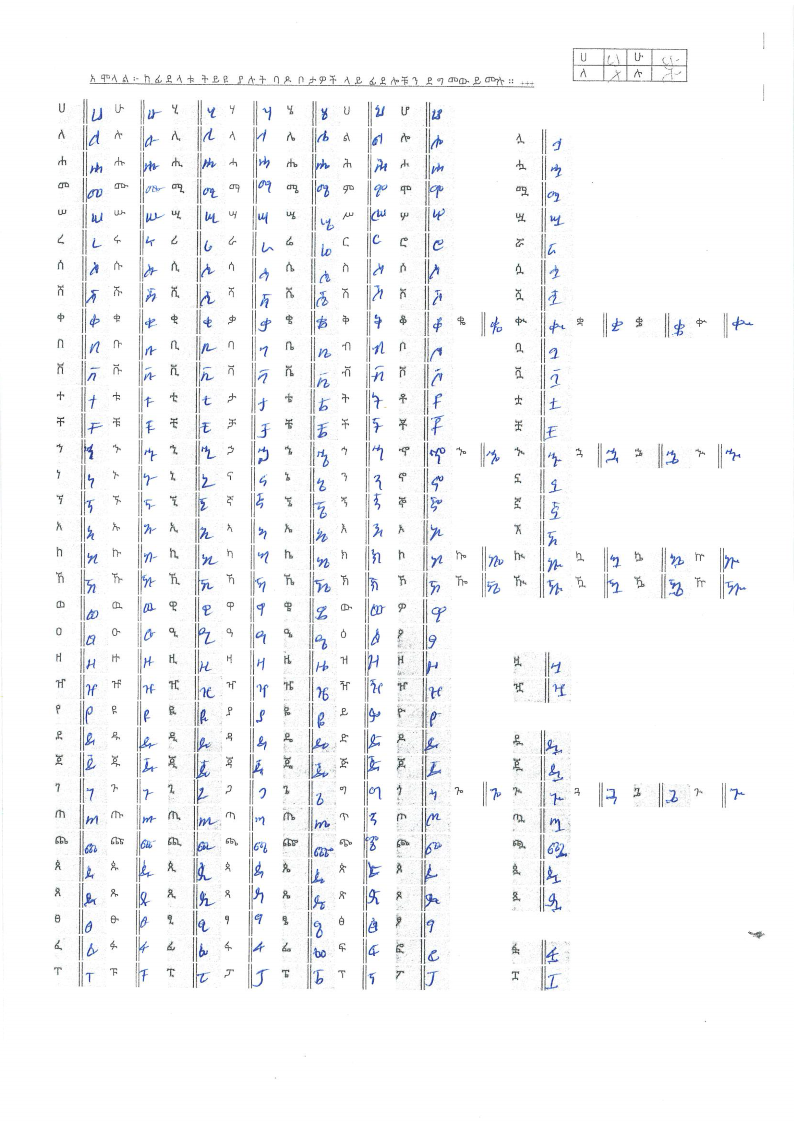 ሀ ሀ ሁ ሁ
ለ ለ ሉ ሉ
አሞላል ፦ ከፊደላቱ ትይዩ ያሉት ባዶ ቦታዎች ላይ ፊደሎቹን ደግመው ይሙሉ ። ...
ሀ ሀ ሁ ሁ ሂ ሂ ሃ ሃ ሄ ሄ ህ ህ ሆ ሆ
ለ ለ ሉ ሉ ሊ ሊ ላ ላ ሌ ሌ ል ል ሎ ሎ ሏ ሏ
ሐ ሐ ሑ ሑ ሒ ሒ ሓ ሓ ሔ ሔ ሕ ሕ ሖ ሖ ሗ ሗ
መ መ ሙ ሙ ሚ ሚ ማ ማ ሜ ሜ ም ም ሞ ሞ ሟ ሟ
ሠ ሠ ሡ ሡ ሢ ሢ ሣ ሣ ሤ ሤ ሥ ሥ ሦ ሦ ሧ ሧ
ረ ረ ሩ ሩ ሪ ሪ ራ ራ ሬ ሬ ር ር ሮ ሮ ሯ ሯ
ሰ ሰ ሱ ሱ ሲ ሲ ሳ ሳ ሴ ሴ ስ ስ ሶ ሶ ሷ ሷ
ሸ ሸ ሹ ሹ ሺ ሺ ሻ ሻ ሼ ሼ ሽ ሽ ሾ ሾ ሿ ሿ
ቀ ቀ ቁ ቁ ቂ ቂ ቃ ቃ ቄ ቄ ቅ ቅ ቆ ቆ ቈ ቈ ቊ ቊ ቋ ቋ ቌ ቌ ቍ ቍ
በ በ ቡ ቡ ቢ ቢ ባ ባ ቤ ቤ ብ ብ ቦ ቦ ቧ ቧ
ቨ ቨ ቩ ቩ ቪ ቪ ቫ ቫ ቬ ቬ ቭ ቭ ቮ ቮ ቯ ቯ
ተ ተ ቱ ቱ ቲ ቲ ታ ታ ቴ ቴ ት ት ቶ ቶ ቷ ቷ
ቸ ቸ ቹ ቹ ቺ ቺ ቻ ቻ ቼ ቼ ች ች ቾ ቾ ቿ ቿ
ኀ ኀ ኁ ኁ ኂ ኂ ኃ ኃ ኄ ኄ ኅ ኅ ኆ ኆ ኈ ኈ ኊ ኊ ኋ ኋ ኌ ኌ ኍ ኍ
ነ ነ ኑ ኑ ኒ ኒ ና ና ኔ ኔ ን ን ኖ ኖ ኗ ኗ
ኘ ኘ ኙ ኙ ኚ ኚ ኛ ኛ ኜ ኜ ኝ ኝ ኞ ኞ ኟ ኟ
አ አ ኡ ኡ ኢ ኢ ኣ ኣ ኤ ኤ እ እ ኦ ኦ ኧ ኧ
ከ ከ ኩ ኩ ኪ ኪ ካ ካ ኬ ኬ ክ ክ ኮ ኮ ኰ ኰ ኲ ኲ ኳ ኳ ኴ ኴ ኵ ኵ
ኸ ኸ ኹ ኹ ኺ ኺ ኻ ኻ ኼ ኼ ኽ ኽ ኾ ኾ ዀ ዀ ዂ ዂ ዃ ዃ ዄ ዄ ዅ ዅ
ወ ወ ዉ ዉ ዊ ዊ ዋ ዋ ዌ ዌ ው ው ዎ ዎ
ዐ ዐ ዑ ዑ ዒ ዒ ዓ ዓ ዔ ዔ ዕ ዕ ዖ ዖ
ዘ ዘ ዙ ዙ ዚ ዚ ዛ ዛ ዜ ዜ ዝ ዝ ዞ ዞ ዟ ዟ
ዠ ዠ ዡ ዡ ዢ ዢ ዣ ዣ ዤ ዤ ዥ ዥ ዦ ዦ ዧ ዧ
የ የ ዩ ዩ ዪ ዪ ያ ያ ዬ ዬ ይ ይ ዮ ዮ
ደ ደ ዱ ዱ ዲ ዲ ዳ ዳ ዴ ዴ ድ ድ ዶ ዶ ዷ ዷ
ጀ ጀ ጁ ጁ ጂ ጂ ጃ ጃ ጄ ጄ ጅ ጅ ጆ ጆ ጇ ጇ
ገ ገ ጉ ጉ ጊ ጊ ጋ ጋ ጌ ጌ ግ ግ ጎ ጎ ጐ ጐ ጒ ጒ ጓ ጓ ጔ ጔ ጕ ጕ
ጠ ጠ ጡ ጡ ጢ ጢ ጣ ጣ ጤ ጤ ጥ ጥ ጦ ጦ ጧ ጧ
ጨ ጨ ጩ ጩ ጪ ጪ ጫ ጫ ጬ ጬ ጭ ጭ ጮ ጮ ጯ ጯ
ጰ ጰ ጱ ጱ ጲ ጲ ጳ ጳ ጴ ጴ ጵ ጵ ጶ ጶ ጷ ጷ
ጸ ጸ ጹ ጹ ጺ ጺ ጻ ጻ ጼ ጼ ጽ ጽ ጾ ጾ ጿ ጿ
ፀ ፀ ፁ ፁ ፂ ፂ ፃ ፃ ፄ ፄ ፅ ፅ ፆ ፆ
ፈ ፈ ፉ ፉ ፊ ፊ ፋ ፋ ፌ ፌ ፍ ፍ ፎ ፎ ፏ ፏ
ፐ ፐ ፑ ፑ ፒ ፒ ፓ ፓ ፔ ፔ ፕ ፕ ፖ ፖ ፗ ፗ